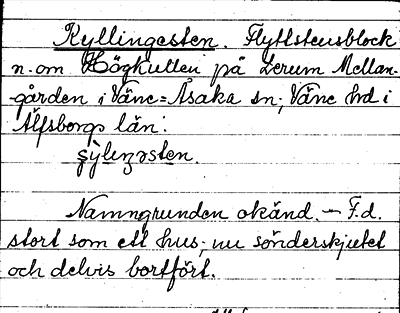 Kyllingesten. Flyttstensblock
n. om Högkullen på Lerum Mellan-
gården i Väne=Åsaka sn, Väne hd i
Älfsborgs län.
Namngrunden okänd. – F.d.
stort som ett hus, nu sönderskjutet
och delvis bortfört.